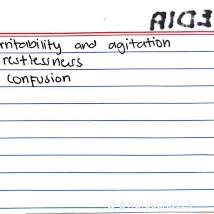 rritability and agitation
restlessness
confusion